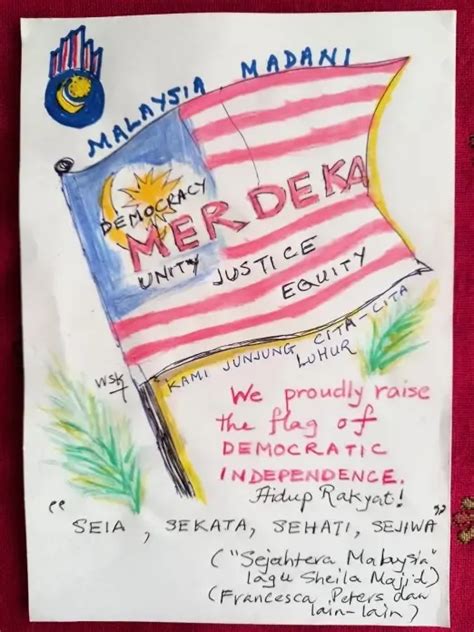 MALAYSIA MADANI
DEMOCRACY
MERDEKA
UNITY JUSTICE
EQUITY
KAMI JUNJUNG CITA-CITA
LUHUR
WSK
We proudly raise
the flag of
DEMOCRATIC
INDEPENDENCE.
Hidup Rakyat!
"SEIA, SEKATA, SEHATI, SEJIWA"
("Sejahtera Malaysia"
lagu Sheila Majid)
(Francesca Peters dan
lain-lain)